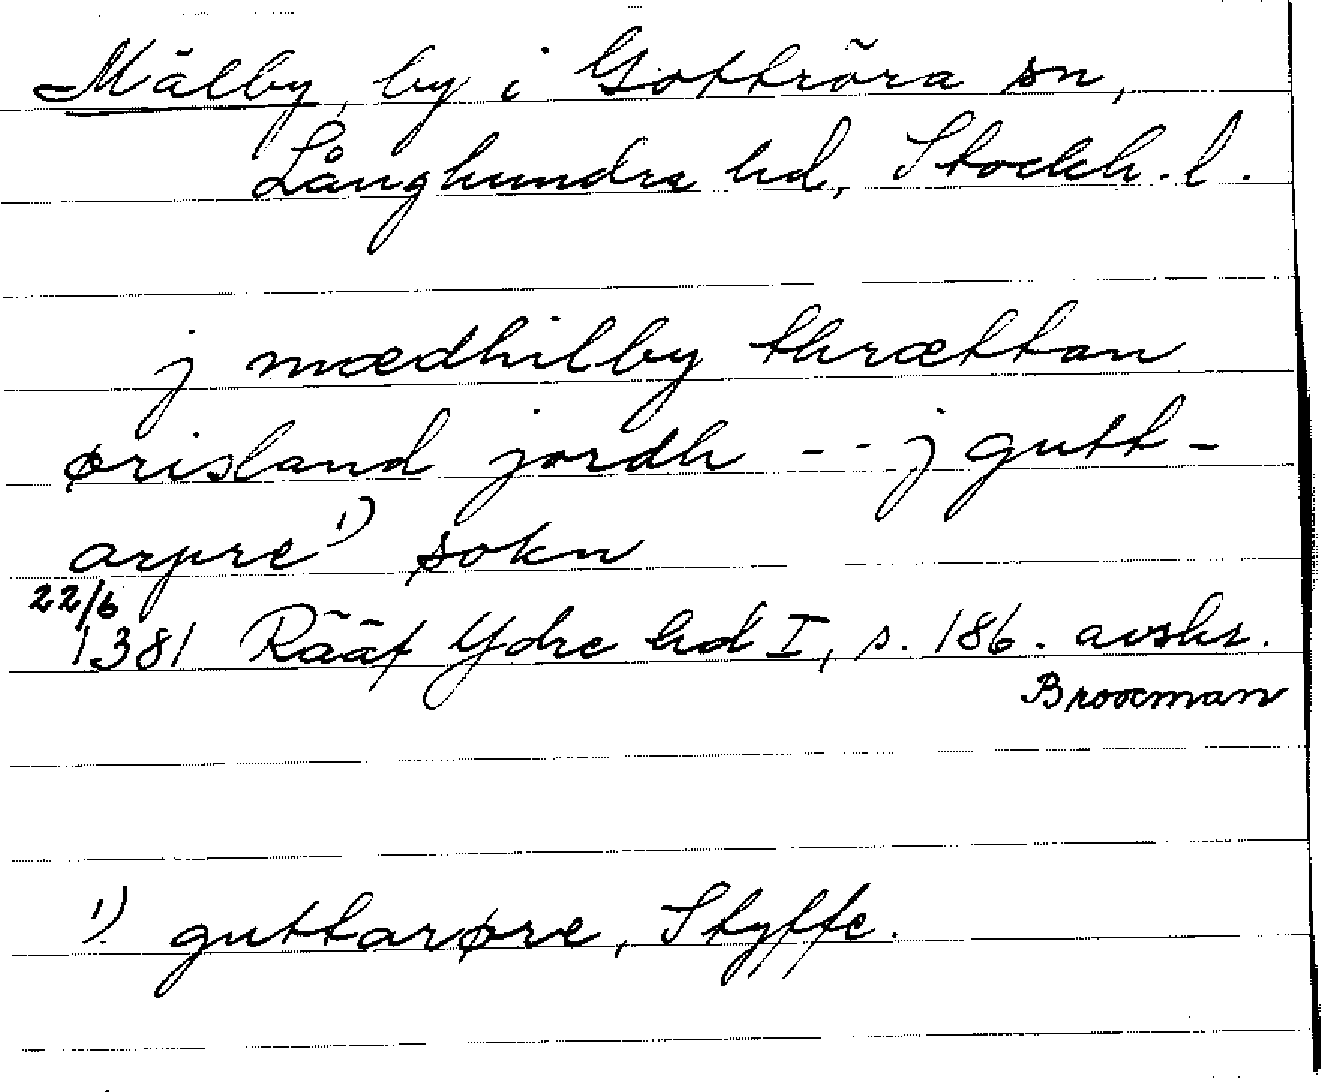 Mälby, by i Gottröra sn,
Långhundra hd, Stockh. l.
j mædhilby thrættan
ørisland jordh - - j gutt-
arpre 1) sokn
22/6
1381 Rääf Ydre hd I, s. 186. avskr.
Broocman
1) guttarøre, Styffe.